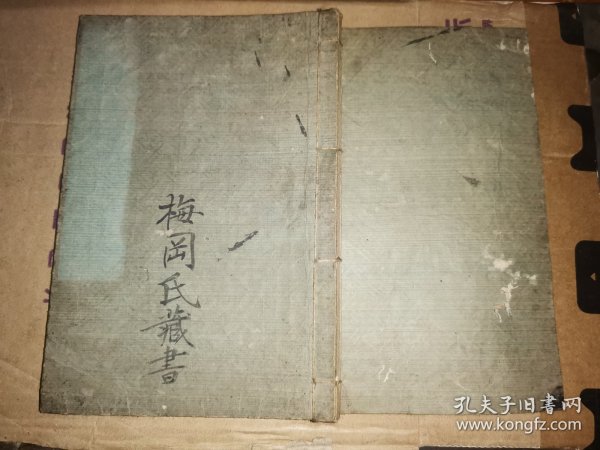 梅岡氏藏書
孔夫子旧書网
www.kongfz.com